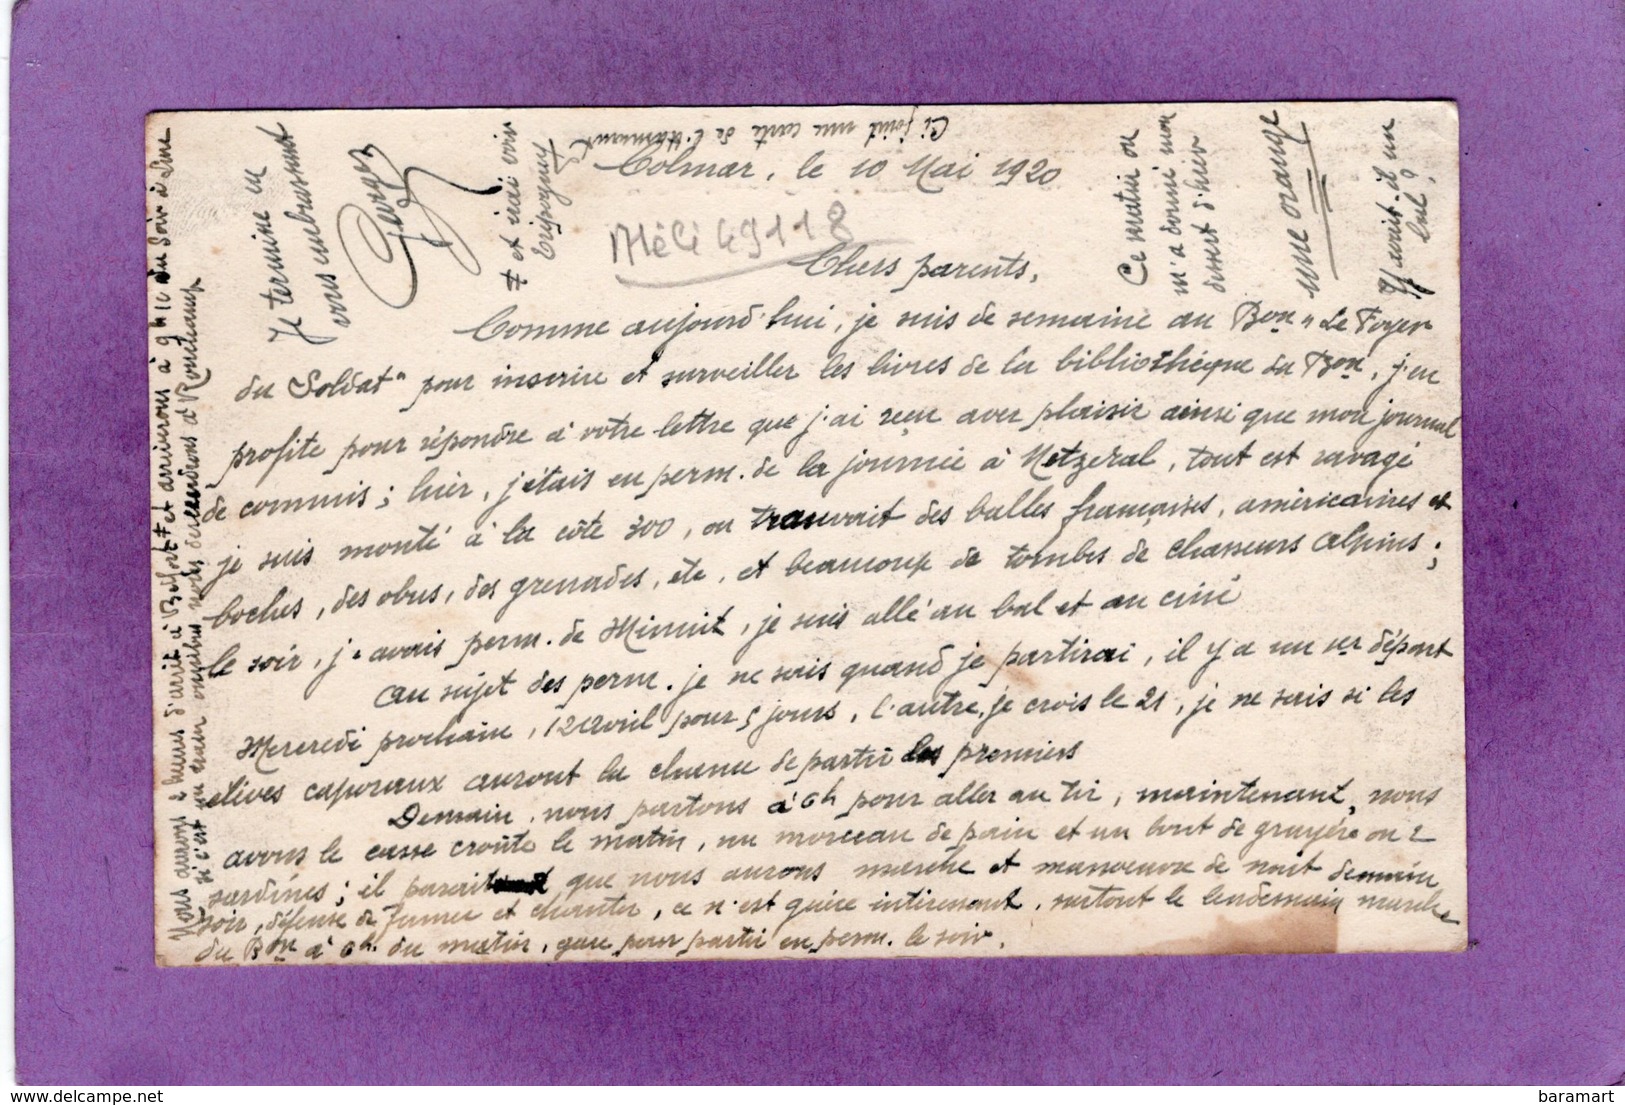 Colmar, le 10 Mai 1920
Chers parents,
Comme aujourd'hui, je suis de semaine au Bon "Le Foyer
du Soldat" pour inscrire et surveiller les livres de la bibliothèque du Bon, j'en
profite pour répondre à votre lettre que j'ai reçu avec plaisir ainsi que mon journal
de commis; hier, j'étais en perm. de la journée à Metzeral, tout est ravagé
je suis monté à la côte 300, on trouvait des balles françaises, américaines et
boches, des obus, des grenades, etc, et beaucoup de tombes de chasseurs alpins;
le soir, j'avais perm. de Minuit, je suis allé au bal et au ciné
au sujet des perm. je ne sais quand je partirai, il y a un 1er départ
Mercredi prochain, 12 avril pour 5 jours, l'autre, je crois le 21, je ne sais si les
élèves caporaux auront la chance de partir les premiers
Demain, nous partons à 6h pour aller au tir, maintenant, nous
avons le casse croûte le matin, un morceau de pain et un bout de gruyère ou 2
sardines; il parait que nous aurons marche et manœuvre de nuit demain
soir, défense de fumer et chanter, ce n'est guère intéressant, surtout le lendemain marche
du Bon à 6h. du matin, gare pour partir en perm. le soir.
Nous aurons 2 heures d'arrêt à Belfort # et arriverons à 9h 10 du soir à
si c'est un train omnibus nous descendrons à Ronchamp
Je termine en
vous embrassant
Georges
# et irai voir
Ci joint une carte de l'
Ce matin on
m'a donné mon
dessert d'hier
une orange
Y avait-il un
bal?
Méli 49118
delcampe.net
baramart